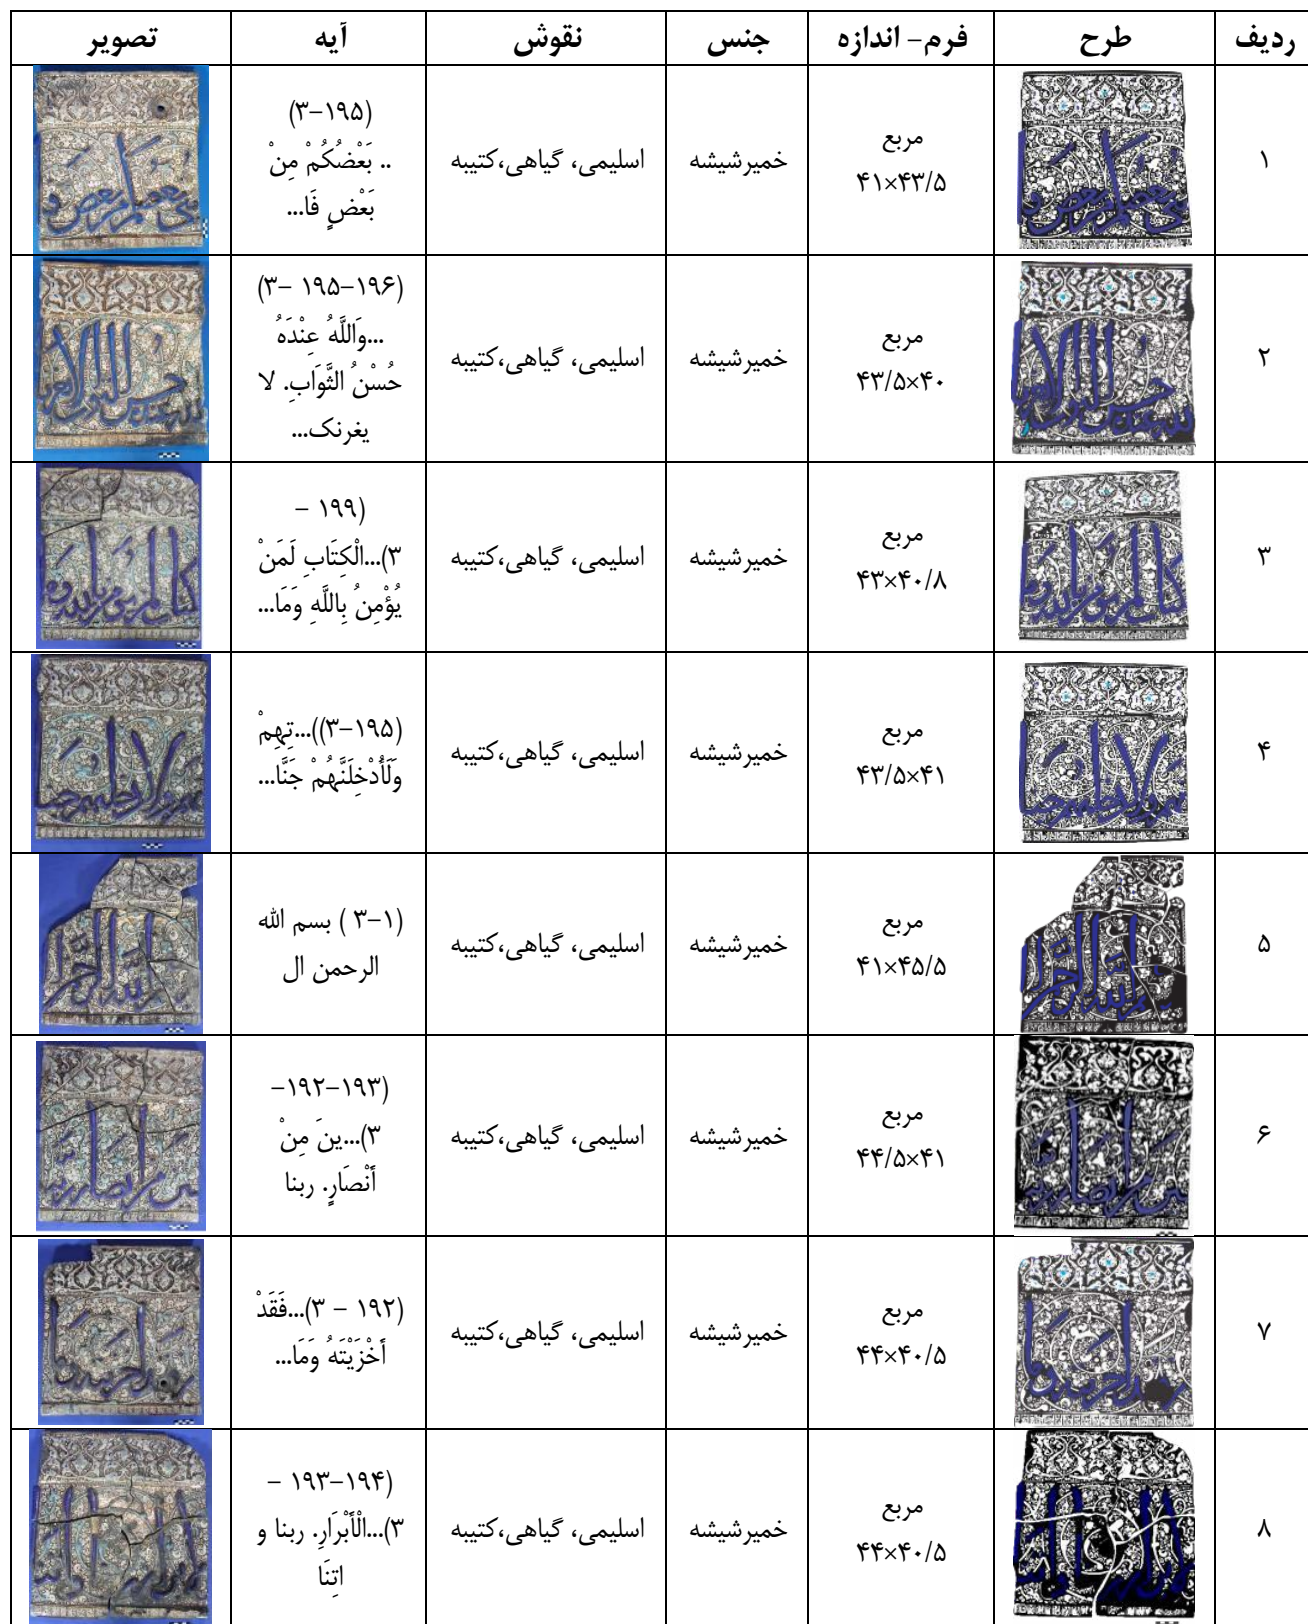 ردیف طرح فرم- اندازه جنس نقوش آیه تصویر
۱
مربع
۴۱×۴۳/۵
خمیرشیشه
اسلیمی، گیاهی،کتیبه
(۳-۱۹۵)
.. بَعْضُكُمْ مِنْ
بَعْضٍ فَا...
۲
مربع
۴۳/۵×۴۰
خمیرشیشه
اسلیمی، گیاهی،کتیبه
(۳- ۱۹۵-۱۹۶)
...وَاللَّهُ عِنْدَهُ
حُسْنُ الثَّوَابِ. لا
یغرنک...
۳
مربع
۴۳×۴۰/۸
خمیرشیشه
اسلیمی، گیاهی،کتیبه
(۱۹۹ –
۳)...الْكِتَابِ لَمَنْ
يُؤْمِنُ بِاللَّهِ وَمَا...
۴
مربع
۴۳/۵×۴۱
خمیرشیشه
اسلیمی، گیاهی،کتیبه
(۱۹۵-۳))...تِهِمْ
وَلَأُدْخِلَنَّهُمْ جَنَّا...
۵
مربع
۴۱×۴۵/۵
خمیرشیشه
اسلیمی، گیاهی،کتیبه
(۱-۳ ) بسم الله
الرحمن ال
۶
مربع
۴۴/۵×۴۱
خمیرشیشه
اسلیمی، گیاهی،کتیبه
(۱۹۳-۱۹۲-
۳)...ینَ مِنْ
أَنْصَارٍ. ربنا
۷
مربع
۴۴×۴۰/۵
خمیرشیشه
اسلیمی، گیاهی،کتیبه
(۱۹۲ – ۳)...فَقَدْ
أَخْزَيْتَهُ وَمَا...
۸
مربع
۴۴×۴۰/۵
خمیرشیشه
اسلیمی، گیاهی،کتیبه
(۱۹۴-۱۹۳ –
۳)...الْأَبْرَارِ. ربنا و
اتِنَا